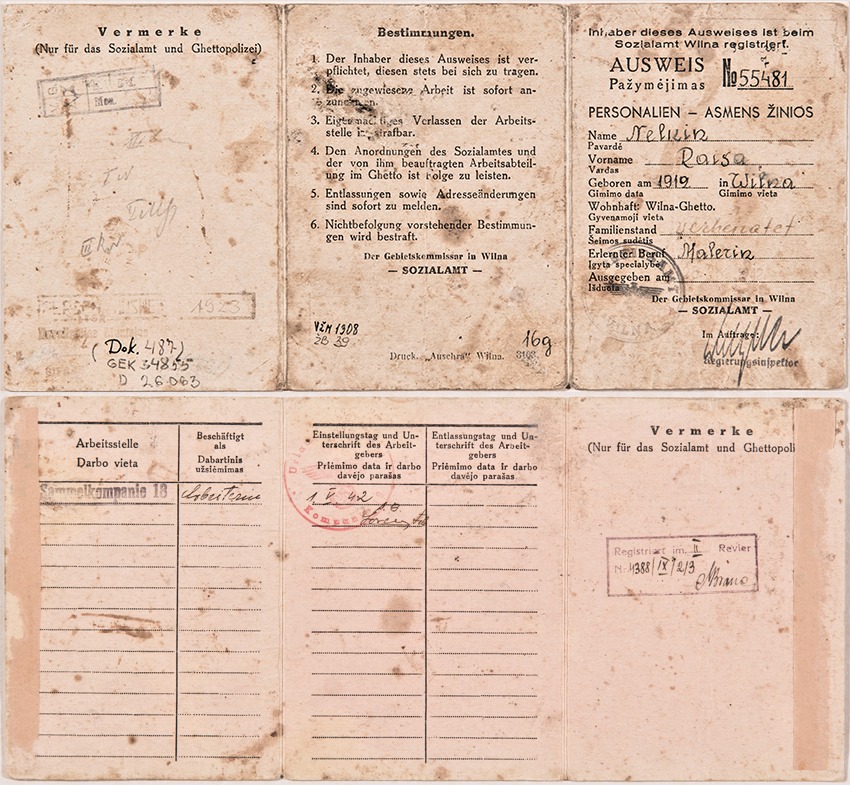 Vermerke
(Nur für das Sozialamt und Ghettopolizei)
1923
(Dok. 487)
GEK 34855
D 26063
Bestimmungen.
1. Der Inhaber dieses Ausweises ist ver-
pflichtet, diesen stets bei sich zu tragen.
2. Die zugewiesene Arbeit ist sofort an-
zunehmen.
3. Eigenmächtiges Verlassen der Arbeits-
stelle ist strafbar.
4. Den Anordnungen des Sozialamtes und
der von ihm beauftragten Arbeitsabteil-
ung im Ghetto ist Folge zu leisten.
5. Entlassungen sowie Adresseänderungen
sind sofort zu melden.
6. Nichtbefolgung vorstehender Bestimmun-
gen wird bestraft.
Der Gebietskommissar in Wilna
— SOZIALAMT —
VŽM 1308
ЗВ 39
16g
Druck. „Auschra" Wilna.
Inhaber dieses Ausweises ist beim
Sozialamt Wilna registriert.
AUSWEIS № 55481
Pažymėjimas
PERSONALIEN – ASMENS ŽINIOS
Name Nelkin
Pavardė
Vorname Raisa
Vardas
Geboren am 1919 in Wilna
Gimimo data Gimimo vieta
Wohnhaft: Wilna-Ghetto.
Gyvenamoji vieta
Familienstand
Šeimos sudėtis
Erlernter Beruf Malerin
Įgyta specialybė
Ausgegeben am
Išduota
Der Gebietskommissar in Wilna
— SOZIALAMT —
Im Auftrage:
Regierungsinspektor
Arbeitsstelle
Darbo vieta
Beschäftigt
als
Dabartinis
užsiėmimas
Sammelkompanie 18 Arbeiterin
Einstellungstag und Un-
terschrift des Arbeit-
gebers
Priėmimo data ir darbo
davėjo parašas
1 V. 42
Entlassungstag und Un-
terschrift des Arbeit-
gebers
Priėmimo data ir darbo
davėjo parašas
Vermerke
(Nur für das Sozialamt und Ghettopoli
Registriert im II Revier
Nr. 4388/IX/2/3